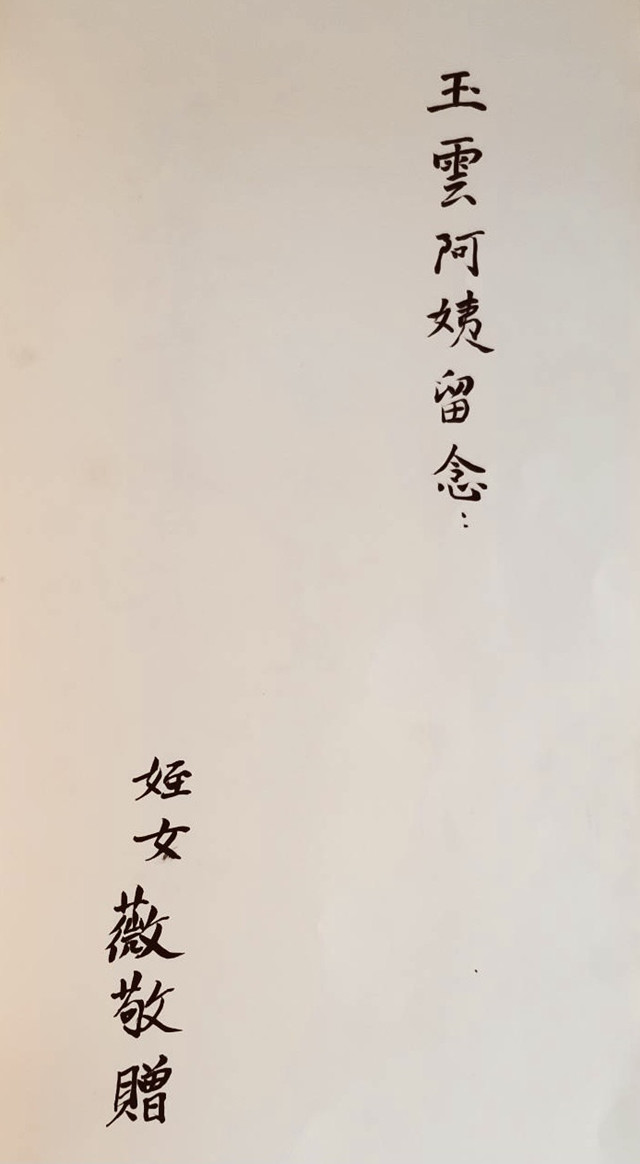 玉雲阿姨留念：
姪女薇敬贈